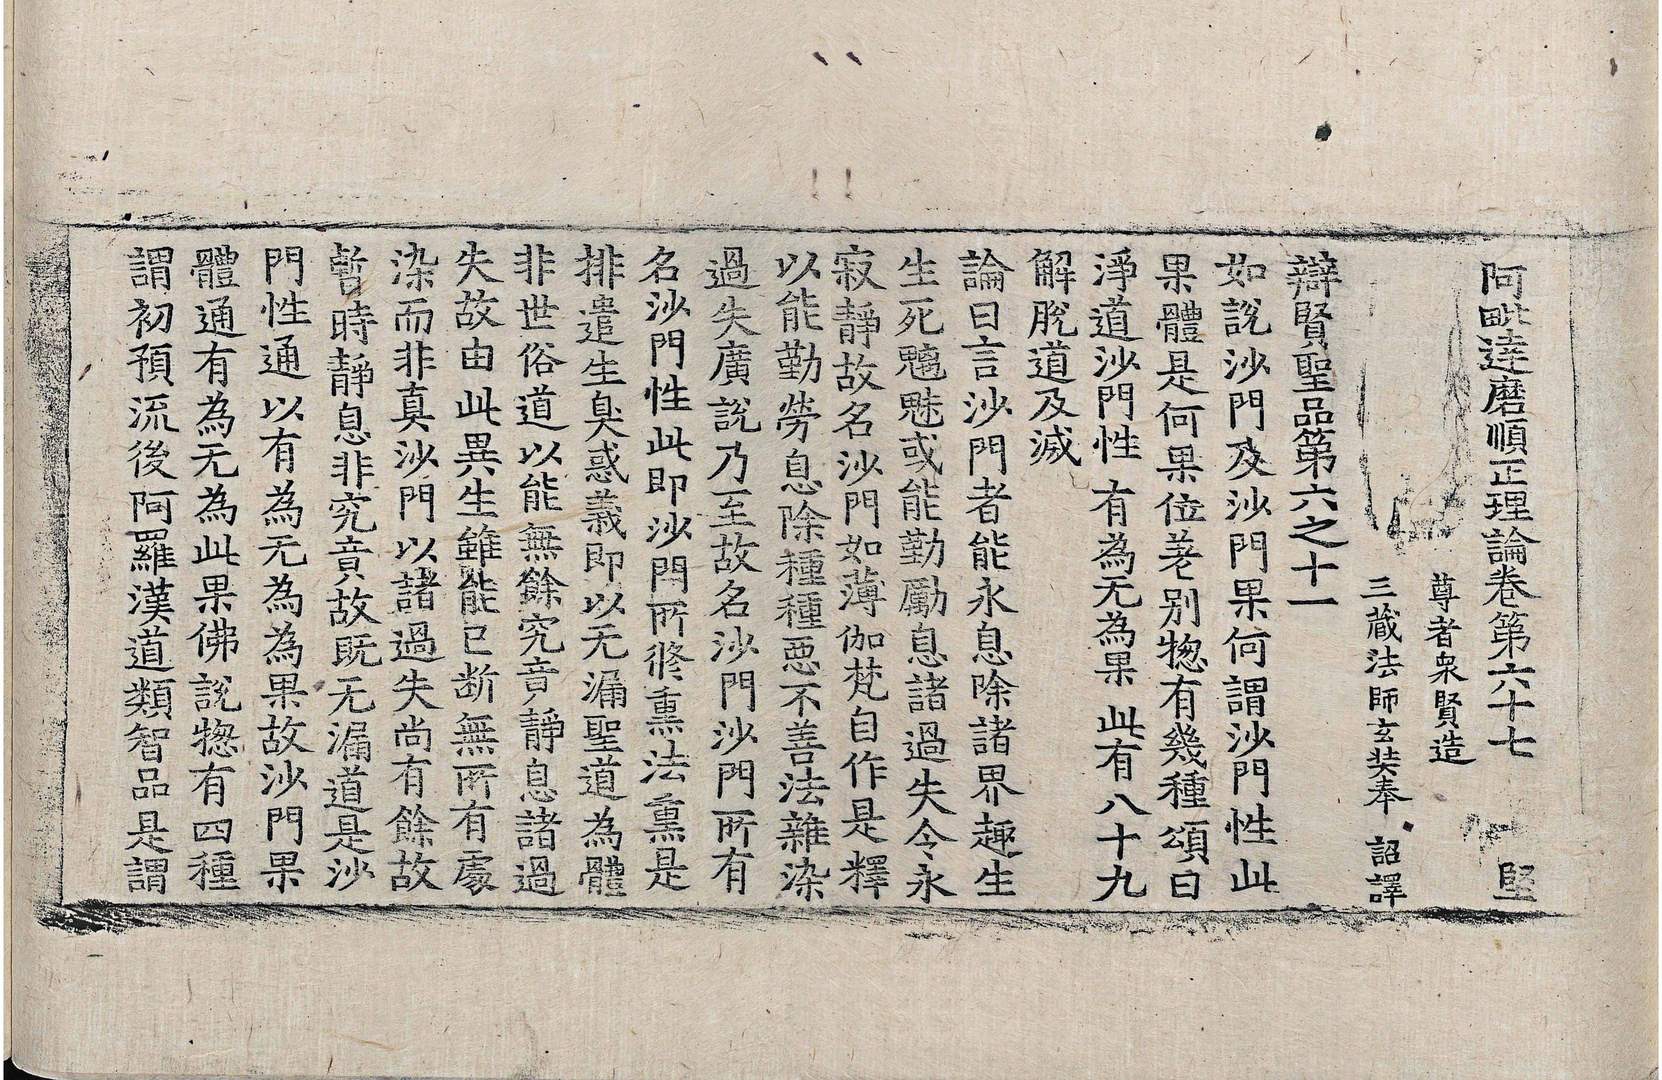 阿毗達磨順正理論卷第六十七　堅
尊者衆賢造
三藏法師玄奘奉　詔譯
辯賢聖品第六之十一
如說沙門及沙門果何謂沙門性此
果體是何果位差別惣有幾種頌曰
淨道沙門性　有為无為果　此有八十九
解脫道及滅
論曰言沙門者能永息除諸界趣生
生死魑魅或能勤勵息諸過失令永
寂靜故名沙門如薄伽梵自作是釋
以能勤勞息除種種惡不善法雜染
過失廣說乃至故名沙門沙門所有
名沙門性此即沙門所修熏法熏是
排遣生臭惑義即以无漏聖道為體
非世俗道以能無餘究竟靜息諸過
失故由此異生雖能已斷無所有處
染而非真沙門以諸過失尚有餘故
暫時靜息非究竟故既无漏道是沙
門性通以有為无為為果故沙門果
體通有為无為此果佛說惣有四種
謂初預流後阿羅漢道類智品是謂